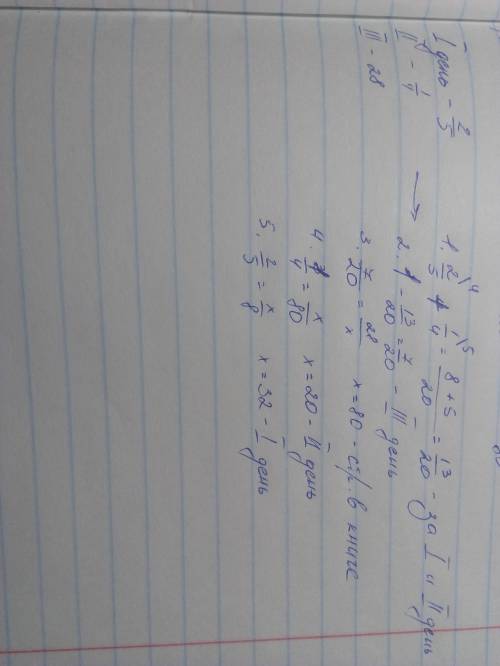 I день - 2/5
II - 1/4
III - 28
→
1. 2/5\4 + 1/4\5 = 8+5/20 = 13/20 - за I и II день
2. 1 - 13/20 = 7/20 - III день
3. 7/20 = 28/x x = 80 - стр. в книге
4. 1/4 = x/80 x = 20 - II день
5. 2/5 = x/8 x = 32 - I день